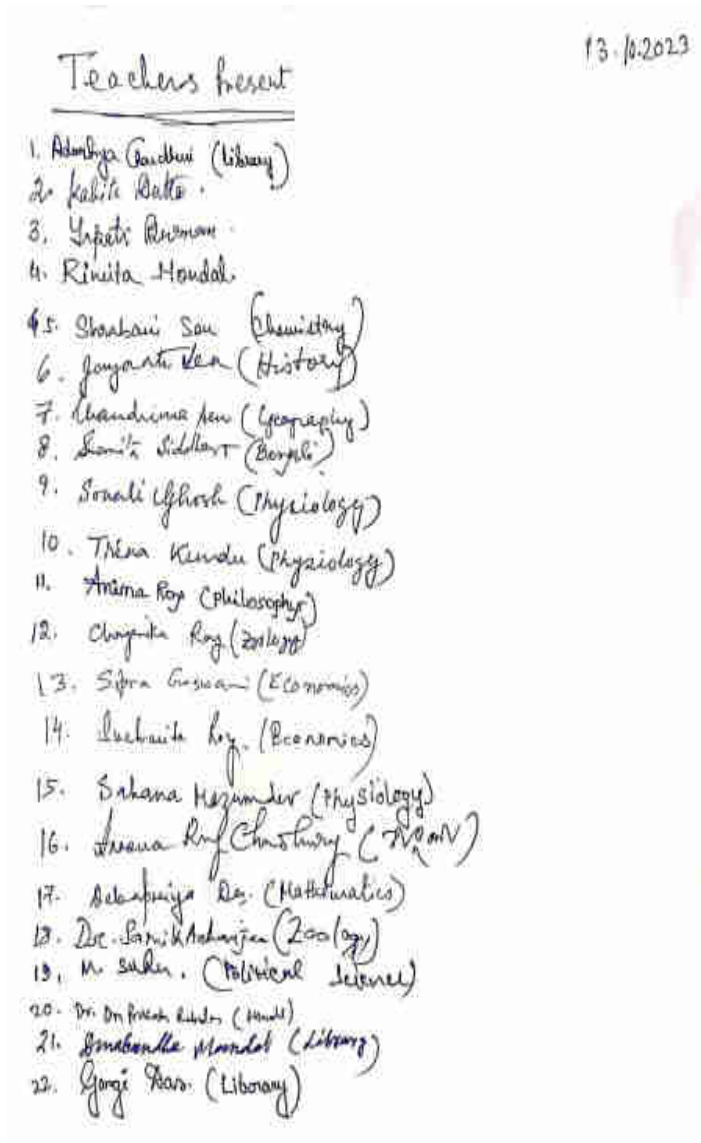 13.10.2023
Teachers Present
1. Chaudhuri (Library)
2. Kabita Dutta.
3. Barman
4. Rimita Mondal.
5. Shrabani Sau (Chemistry)
6. Jayanti Sen (History)
7. Chandrima Sen (Geography)
8. Siddhant (Bengali)
9. Sonali Ghosh (Physiology)
10. Kundu (Physiology)
11. Anima Roy (Philosophy)
12. Roy (Zoology)
13. Sipra Goswami (Economics)
14. Sucharita Roy. (Economics)
15. Sahana Mazumder (Physiology)
16. Chowdhury
17. Debapriya Das. (Mathematics)
18. Dr. Samik Acharjee (Zoology)
19. M. (Political Science)
20. Dr.
21. Mondal (Library)
22. Gargi Das. (Liborary)